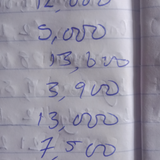 12,000
5,000
13,600
3,900
13,000
7,500